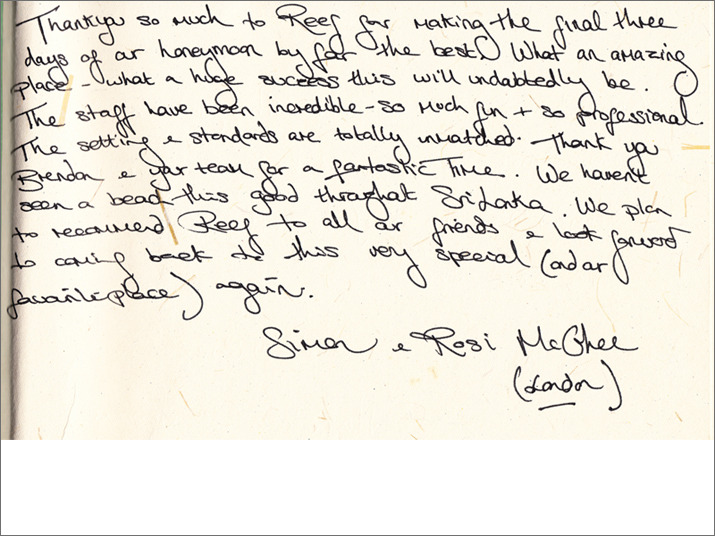 Thankyou so much to Reef for making the final three
days of our honeymoon by far the best! What an amazing
place - what a huge success this will undoubtedly be.
The staff have been incredible - so much fun + so professional.
The setting & standards are totally unmatched. Thank you
Brendon & your team for a fantastic Time. We haven't
seen a beach this good throughout Sri Lanka. We plan
to recommend Reef to all our friends & look forward
to coming back to this very special (and our
favourite place) again.
Simon & Rosi McGhee
(London)